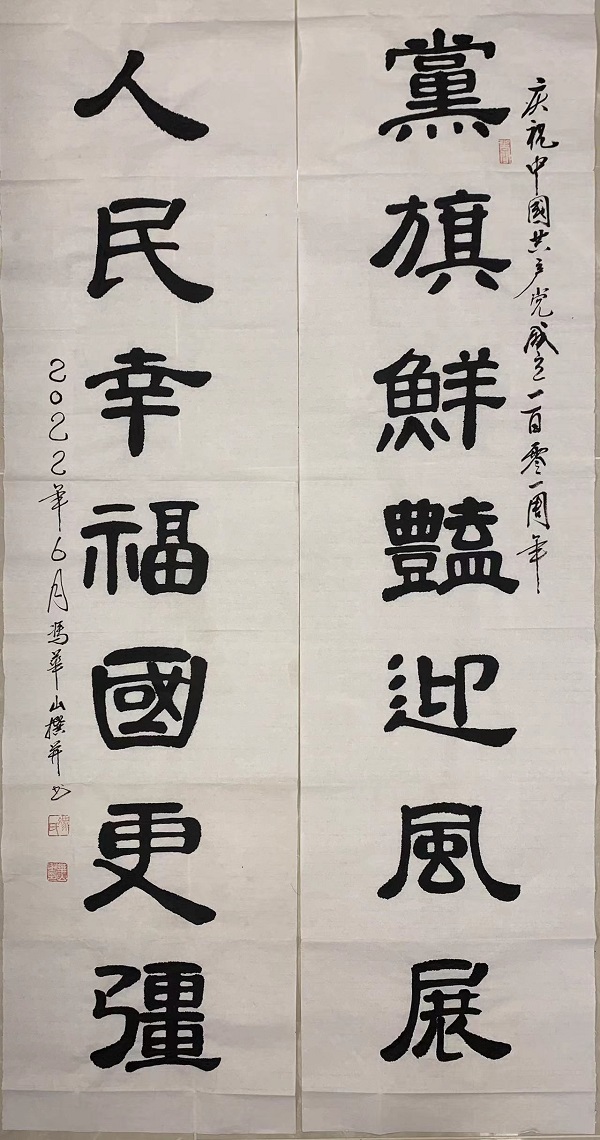 庆祝中國共产党成立一百零一周年
黨旗鮮豔迎風展
人民幸福國更彊
2022年6月馮華山撰并书